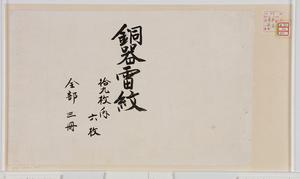 銅器雷紋
拾九枚ノ内
六枚
全部三冊